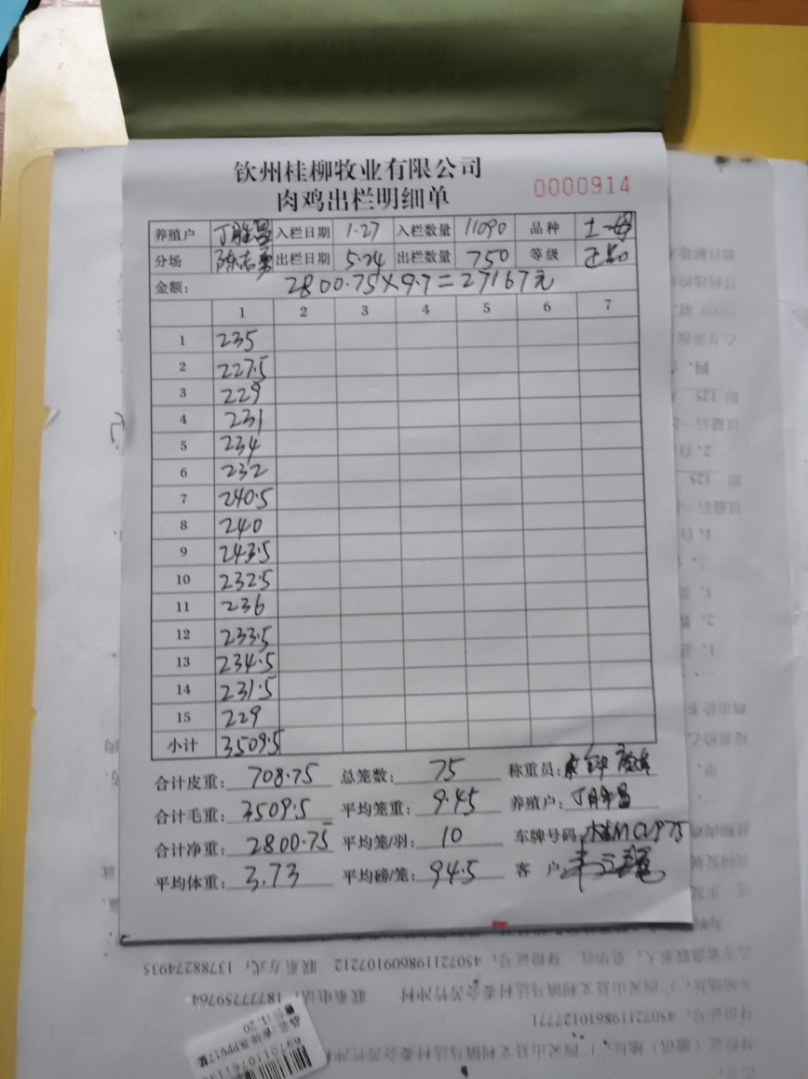 钦州桂柳牧业有限公司
肉鸡出栏明细单 0000914
养殖户 丁胜昌 入栏日期 1.27 入栏数量 11090 品种 土一母
分场 陈志勇 出栏日期 5.24 出栏数量 750 等级 正品
金额: 2800.75×9.7=27167元
1 2 3 4 5 6 7
1 235
2 227.5
3 229
4 231
5 234
6 232
7 240.5
8 240
9 243.5
10 232.5
11 236
12 233.5
13 234.5
14 231.5
15 229
小计 3509.5
合计皮重: 708.75 总笼数: 75 称重员:
合计毛重: 3509.5 平均笼重: 9.45 养殖户: 丁胜昌
合计净重: 2800.75 平均笼/羽: 10 车牌号码:
平均体重: 3.73 平均磅/笼: 94.5 客户